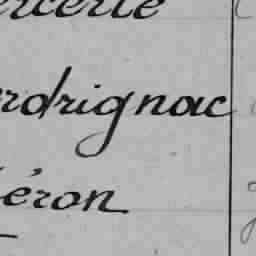 ercerie
erdrignac
éron